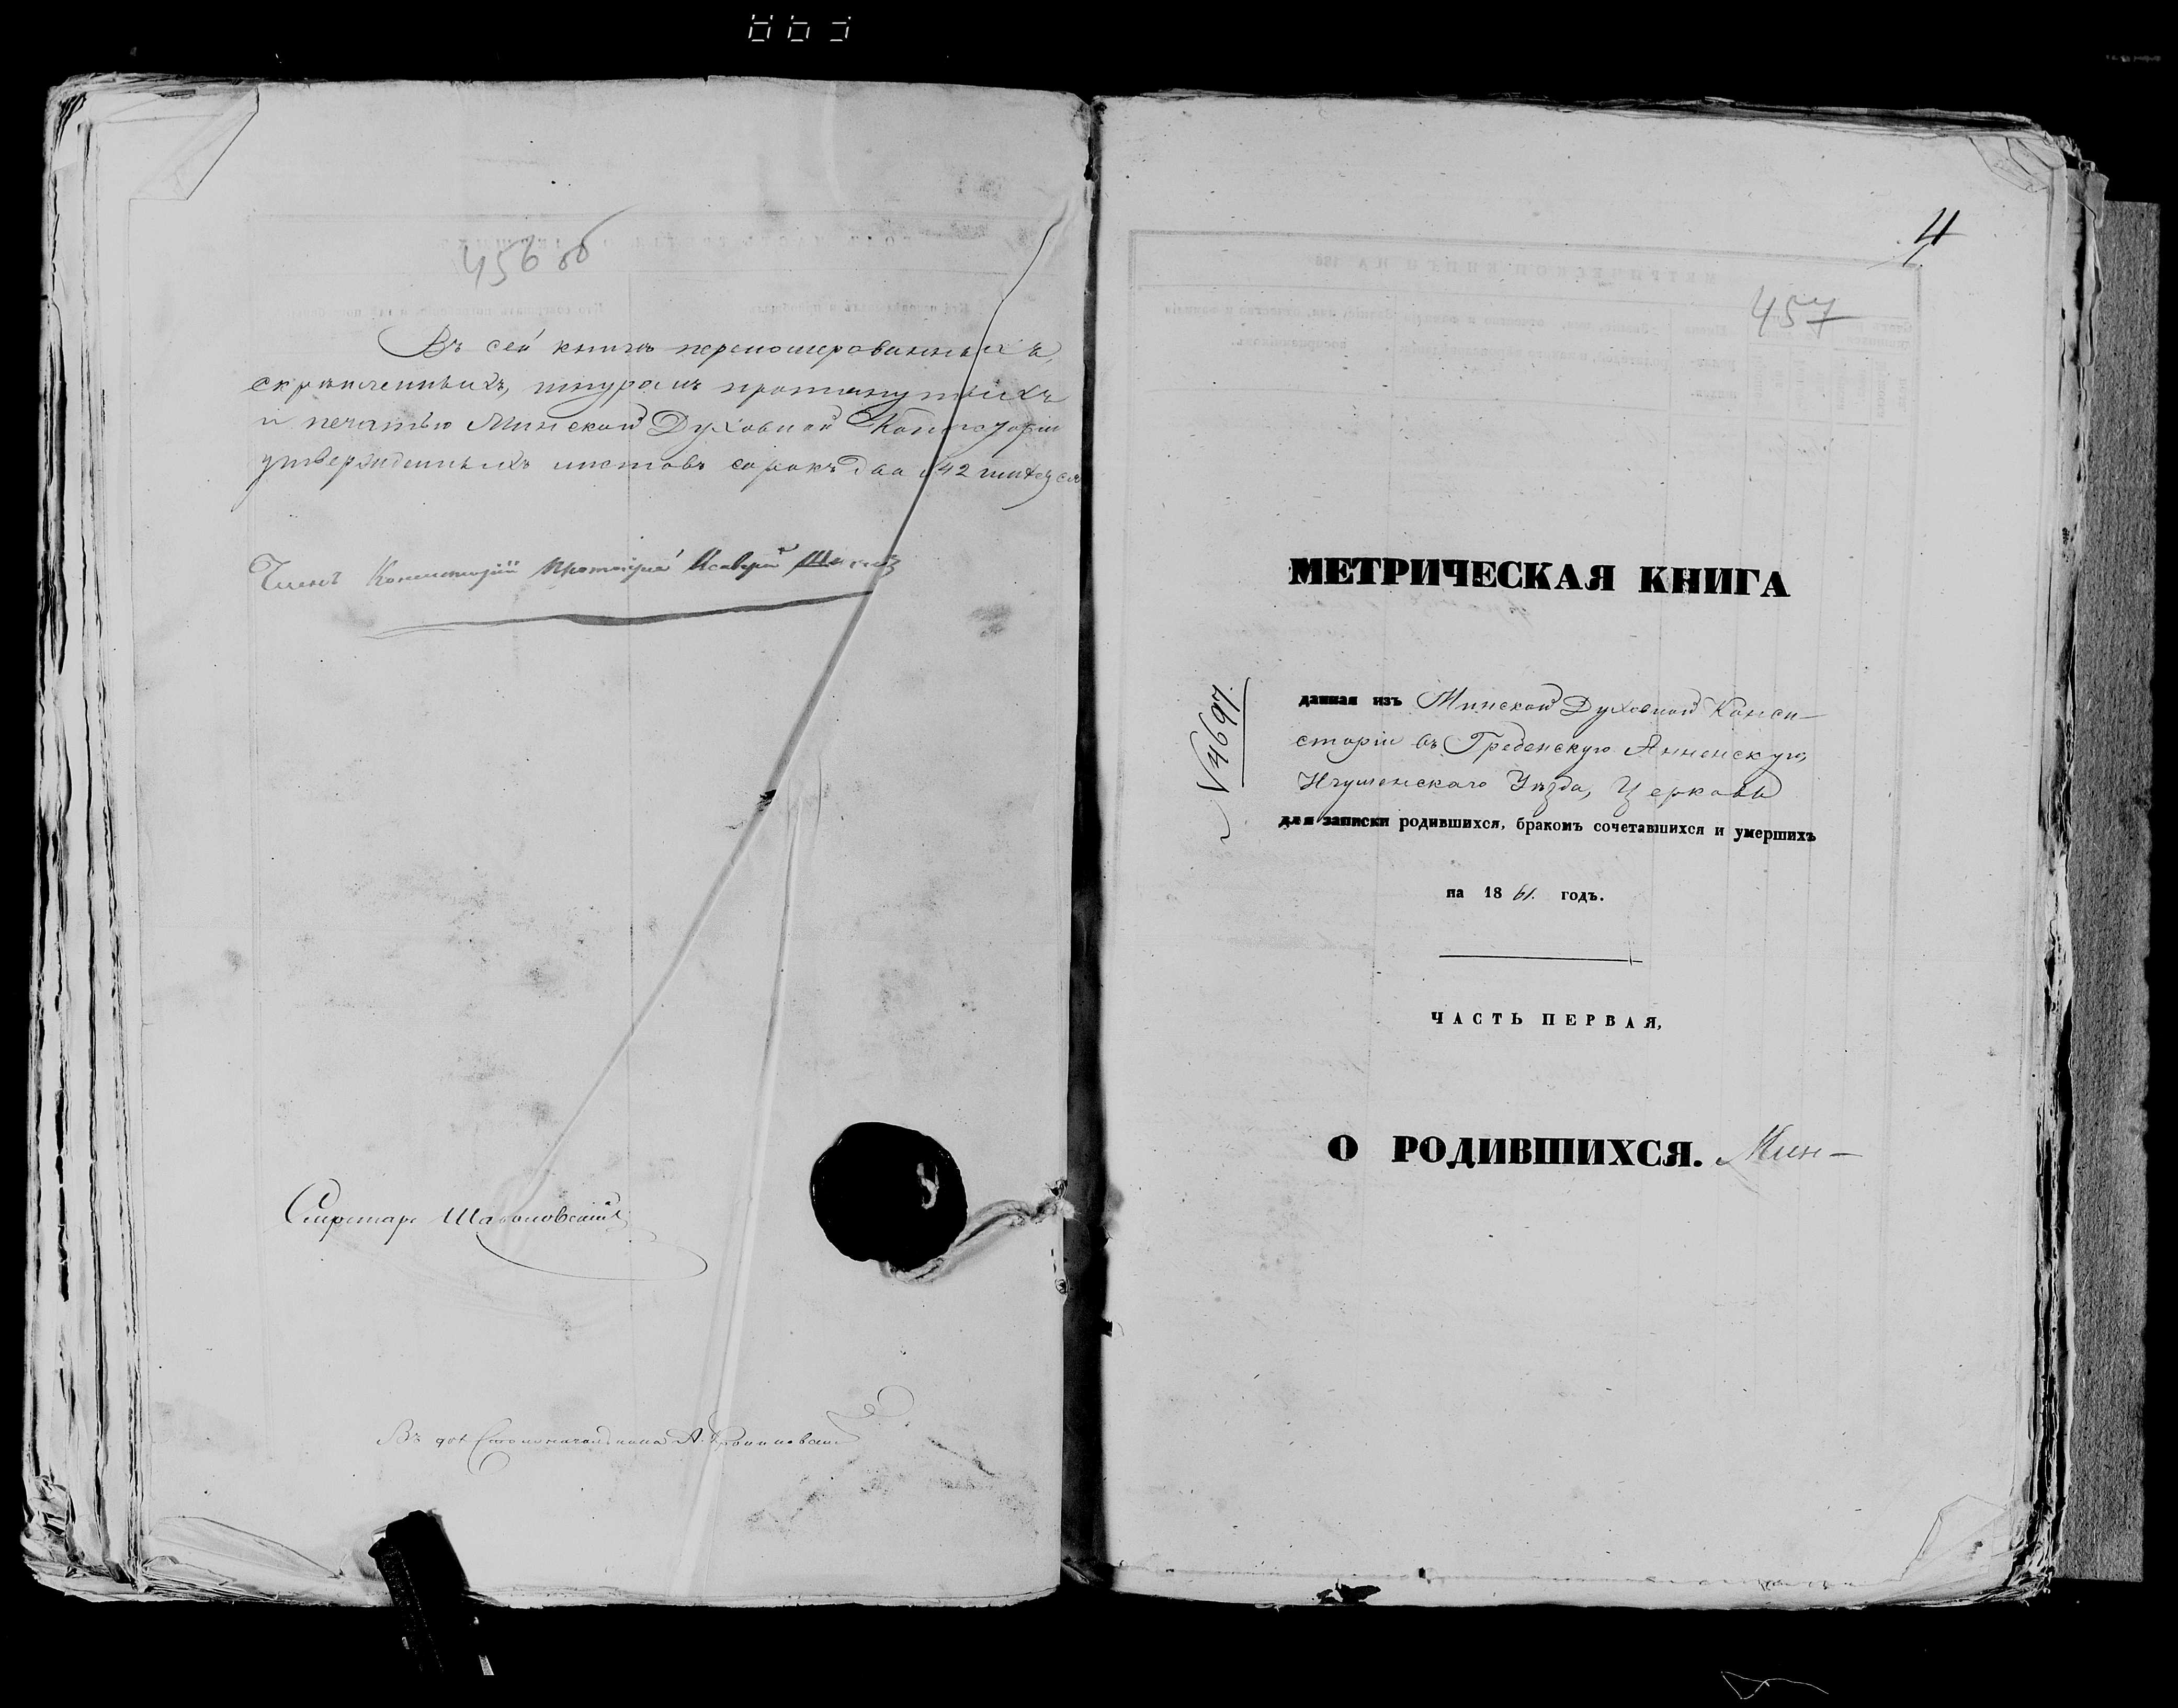 456 об
Въ сей книгѣ перенумерованныхъ,
скрѣпленныхъ, шнуромъ протянутыхъ
и печатью Минской Духовной Консисторіи
утвержденныхъ листовъ сорокъ два 42 листа
Членъ Консисторіи Протоіерей
Секретарь
Въ дол. Столоначальника А.
4
457
МЕТРИЧЕСКАЯ КНИГА
№ 4697.
данная изъ Минской Духовной Конси-
сторіи въ Греденскую Анненскую,
Игуменскаго Уѣзда, Церковь
для записки родившихся, бракомъ сочетавшихся и умершихъ
на 1861. годъ.
ЧАСТЬ ПЕРВАЯ,
О РОДИВШИХСЯ. Мин-